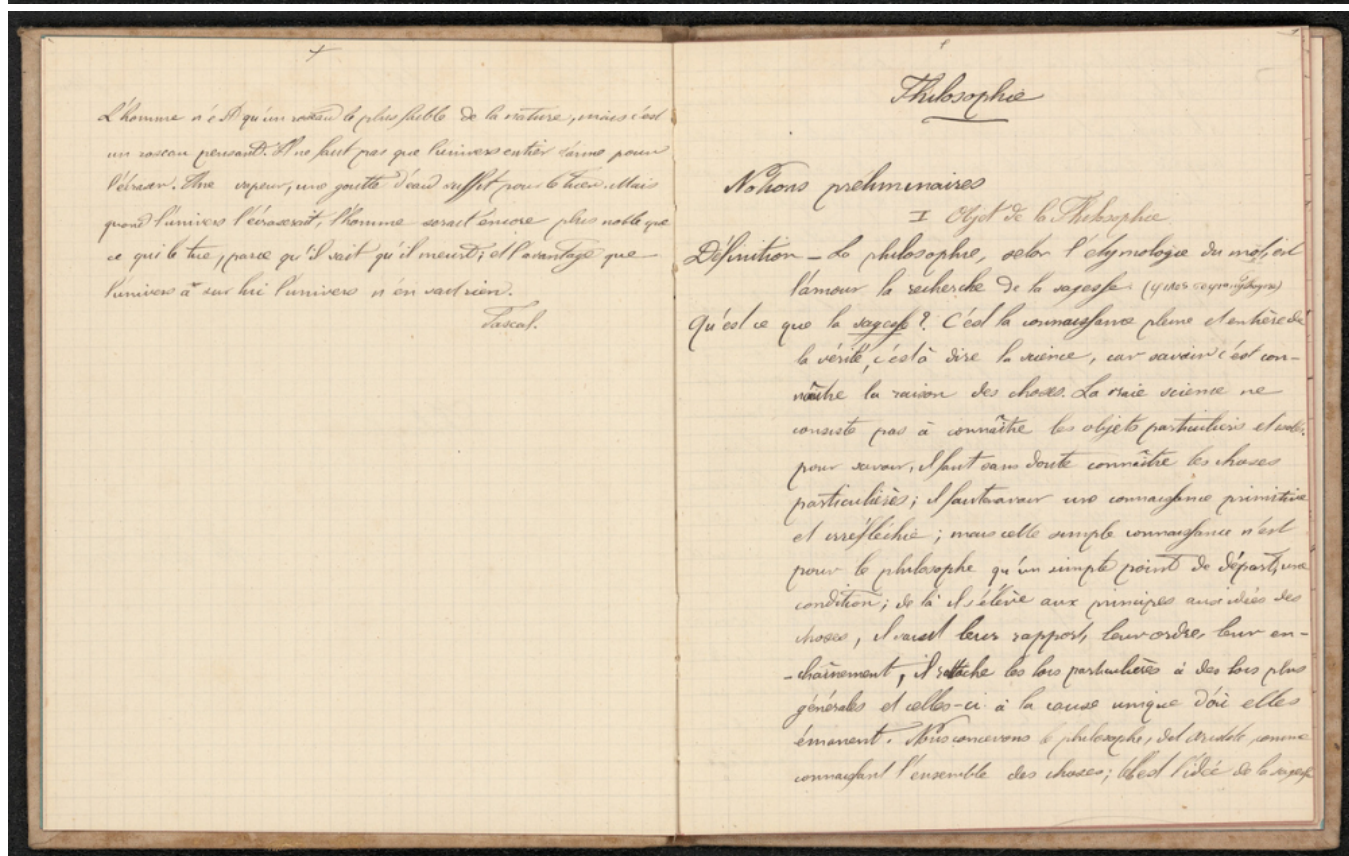 L'homme n'est qu'un roseau le plus faible de la nature, mais c'est
un roseau pensant. Il ne faut pas que l'univers entier s'arme pour
l'écraser. Une vapeur, une goutte d'eau suffit pour le tuer. Mais
quand l'univers l'écraserait, l'homme serait encore plus noble que
ce qui le tue, parce qu'il sait qu'il meurt; et l'avantage que
l'univers a sur lui l'univers n'en sait rien.
Pascal.
Philosophie
Notions préliminaires
I Objet de la Philosophie
Définition — La philosophie, selon l'étymologie du mot, est
l'amour la recherche de la sagesse
Qu'est ce que la sagesse? C'est la connaissance pleine et entière de
la vérité, c'est à dire la science, car savoir c'est con-
naître la raison des choses. La vraie science ne
consiste pas à connaître les objets particuliers et
pour savoir, il faut sans doute connaître les choses
particulières; il faut avoir une connaissance primitive
et irréfléchie; mais cette simple connaissance n'est
pour le philosophe qu'un simple point de départ, une
condition; de là il s'élève aux principes aux idées des
choses, il saisit leur rapport, leur ordre, leur en-
-chaînement, il rattache les lois particulières à des lois plus
générales et celles-ci à la cause unique d'où elles
émanent. Nous concevons le philosophe, dit Aristote, comme
connaissant l'ensemble des choses; telle est l'idée de la sagesse